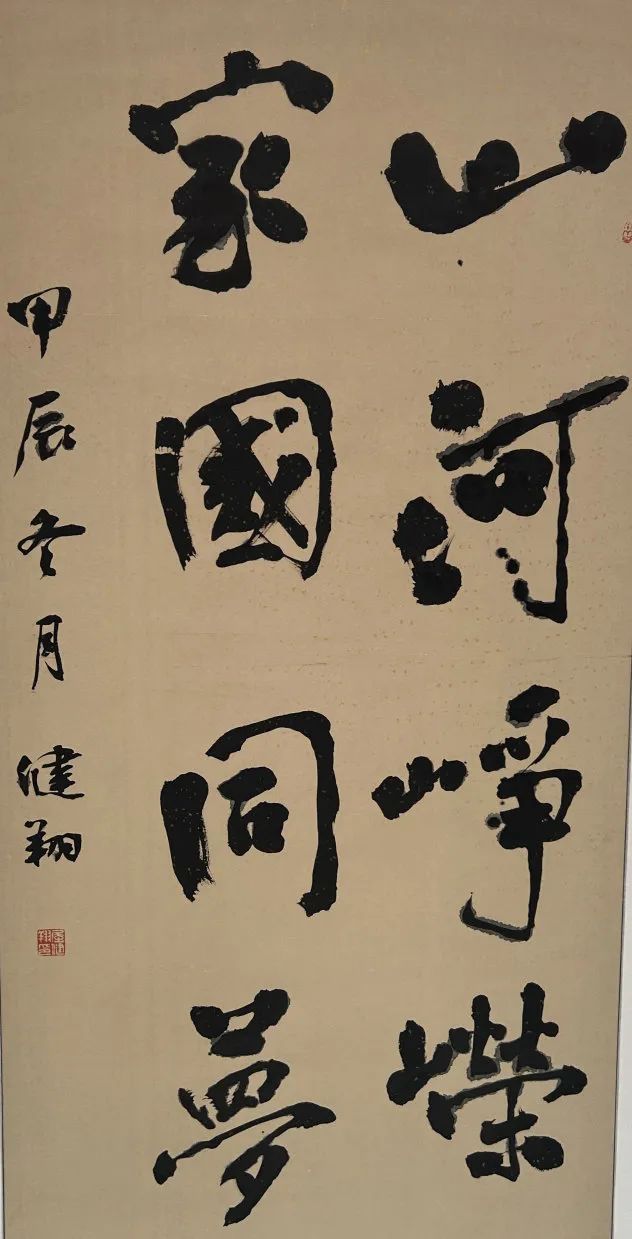 山河崢嶸
家國同夢
甲辰冬月健翔